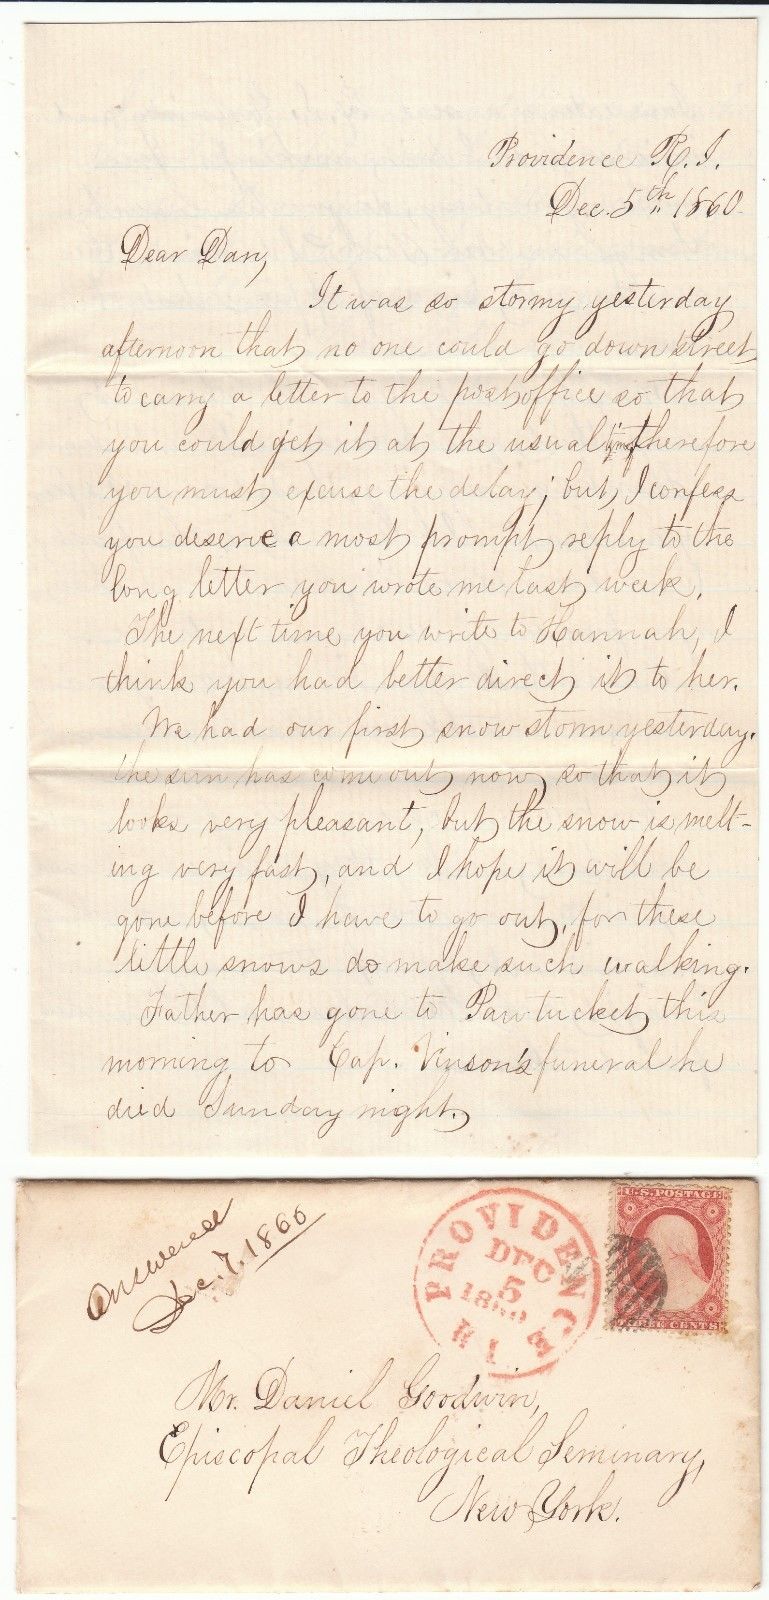 Providence R. I.
Dec. 5th 1860.
Dear Dan,
It was so stormy yesterday
afternoon that no one could go down street
to carry a letter to the post office so that
you could get it at the usual time therefore
you must excuse the delay; but I confess
you deserve a most prompt reply to the
long letter you wrote me last week.
The next time you write to Hannah, I
think you had better direct it to her.
We had our first snow storm yesterday.
the sun has come out now, so that it
looks very pleasant, but the snow is melt-
ing very fast, and I hope it will be
gone before I have to go out, for these
little snows do make such walking.
Father has gone to Pawtucket this
morning to Cap. Vinson's funeral he
died Sunday night.
Answered
Dec. 7. 1860
PROVIDENCE R I
DEC
5
1860
U.S. POSTAGE
THREE CENTS
Mr. Daniel Goodwin,
Episcopal Theological Seminary,
New York.